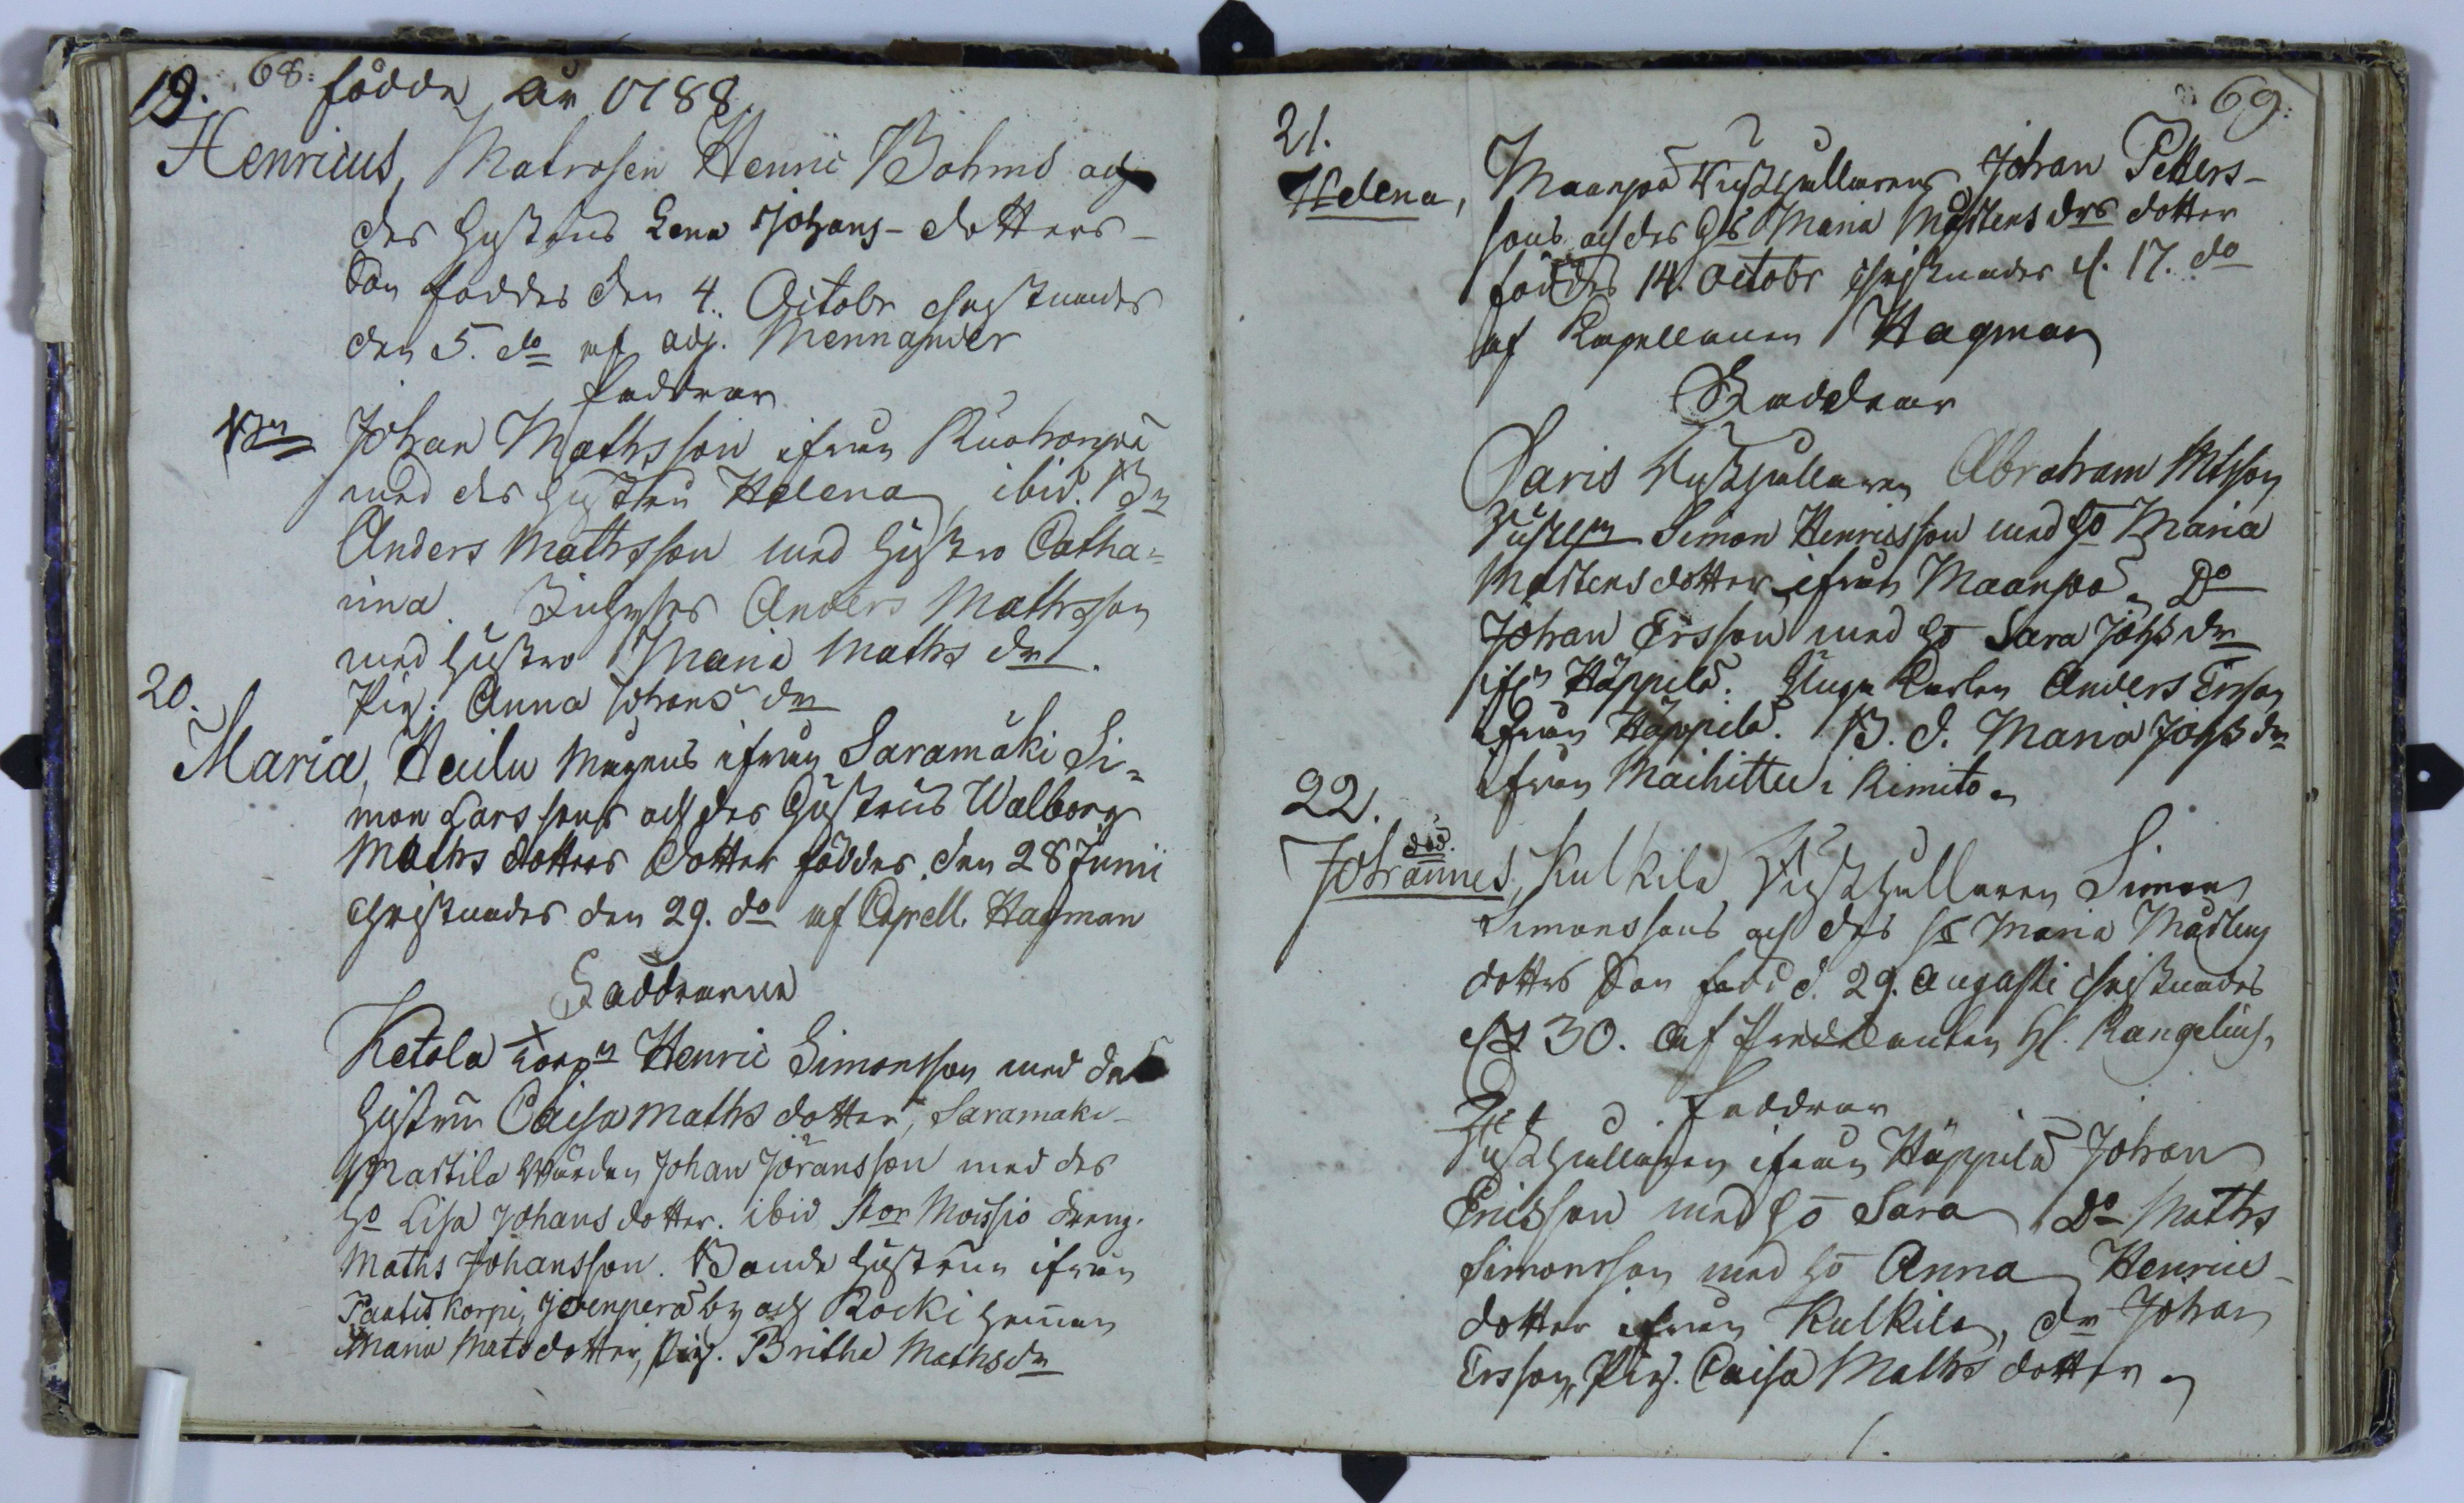 68:
19. födde år 1788.
Henricus, Matrosen Henric Böhms och
des hustrus Lena Johans-dotters-
Son föddes den 4. Octobr christnades
den 5. do af adj. Mennander
faddrar
Bn Johan Mathsson ifrån Ruohonpä
med des hustru Helena, ibid. Bn
Anders Mathsson med hustro Catha=
rina. Anders Mathsson
med hustro Maria Maths dr.
Pig. Anna Johans dr
20.
Maria, Heilu Mågens ifrån Saramäki Si=
mon Larssons och des hustrus Walborg
Maths dotters dotter föddes den 28 Junii
christnades den 29. do af Capell. Hagman
Faddrarne
Ketola Torpn Henric Simonsson med des
hustru Caisa Maths dotter, Saramäki-
Martila Wärden Johan Jöransson med des
ho Lisa Johans dotter. ibid Stor Moissio dreng.
Maths Johansson. Bonde hustrun ifrån
Pantiskorpi, Jovenperä by och Kocki heman
Maria Mats dotter, Pig. Britha Maths dr
69:
21.
Helena, Maanpä Rusthållarens Johan Petters-
sons och des hs Maria Mårtens drs dotter
föddes 14. Octobr christnades d. 17. do
af Capellanen Hagman
Faddrar
Saris Rusthållaren Abraham Mtsson
Simon Henricsson med ho Maria
Mårtensdotter ifrån Maanpä. Do
Johan Ersson med ho Sara Johs dr
ifn Häppilä. Unga Karlen Anders Ersson
ifrån Häppilä. B. d. Maria Johs dr
ifrån Maihittu i Kimito.
22.
död.
Johannes, Kulkila Rusthållaren Simon
Simonssons och des hs Maria Mårtens
dotters Son född d. 29. Augusti christnades
d 30. af Predikanten H. Rangelius,
Faddrar
Rusthållaren ifrån Häppilä Johan
Ericsson med ho Sara, Do Maths
Simonsson med ho Anna Henrics-
dotter ifrån Kulkila, dr Johan
Ersson, Pig. Caisa Maths dotter.